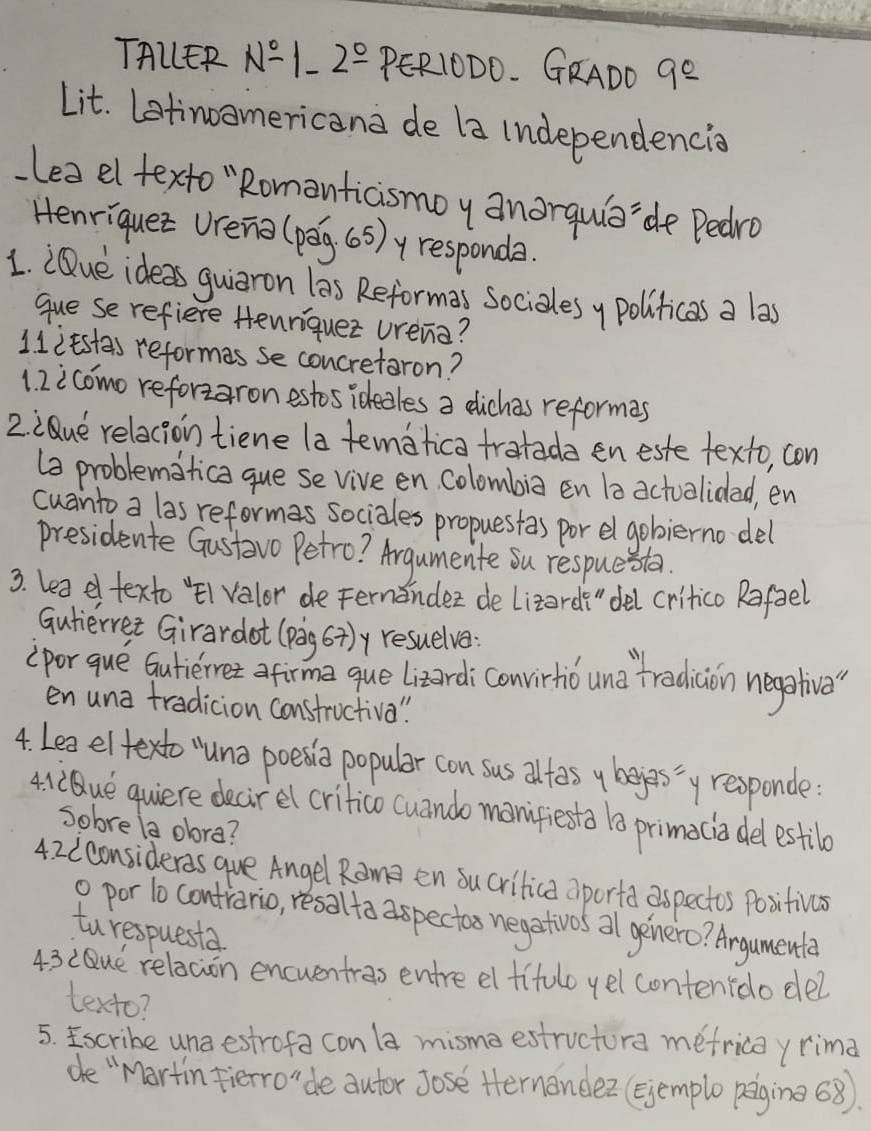 TALLER Nº 1 - 2º PERIODO. GRADO 9º
Lit. Latinoamericana de la independencia
- Lea el texto "Romanticismo y anarquía" de Pedro
Henríquez Ureña (pág. 65) y responda.
1. ¿Qué ideas guiaron las Reformas Sociales y políticas a las
que se refiere Henríquez Ureña?
1.1 ¿Estas reformas se concretaron?
1.2 ¿Cómo reforzaron estos ideales a dichas reformas
2. ¿Qué relación tiene la temática tratada en este texto, con
la problemática que se vive en Colombia en la actualidad, en
cuanto a las reformas sociales propuestas por el gobierno del
presidente Gustavo Petro? Argumente su respuesta.
3. Lea el texto "El valor de Fernández de Lizardi" del crítico Rafael
Gutiérrez Girardot (pág 67) y resuelva:
¿por qué Gutiérrez afirma que Lizardi convirtió una "tradición negativa"
en una tradicion constructiva".
4. Lea el texto "una poesía popular con sus altas y bajas" y responde:
4.1 ¿Qué quiere decir el crítico cuando manifiesta la primacía del estilo
sobre la obra?
4.2 ¿Consideras que Angel Rama en su crítica aporta aspectos positivos
o por lo contrario, resalta aspectos negativos al género? Argumenta
tu respuesta.
4.3 ¿Qué relación encuentras entre el título y el contenido del
texto?
5. Escribe una estrofa con la misma estructura métrica y rima
de "Martín Fierro" de autor José Hernández (Ejemplo página 68).